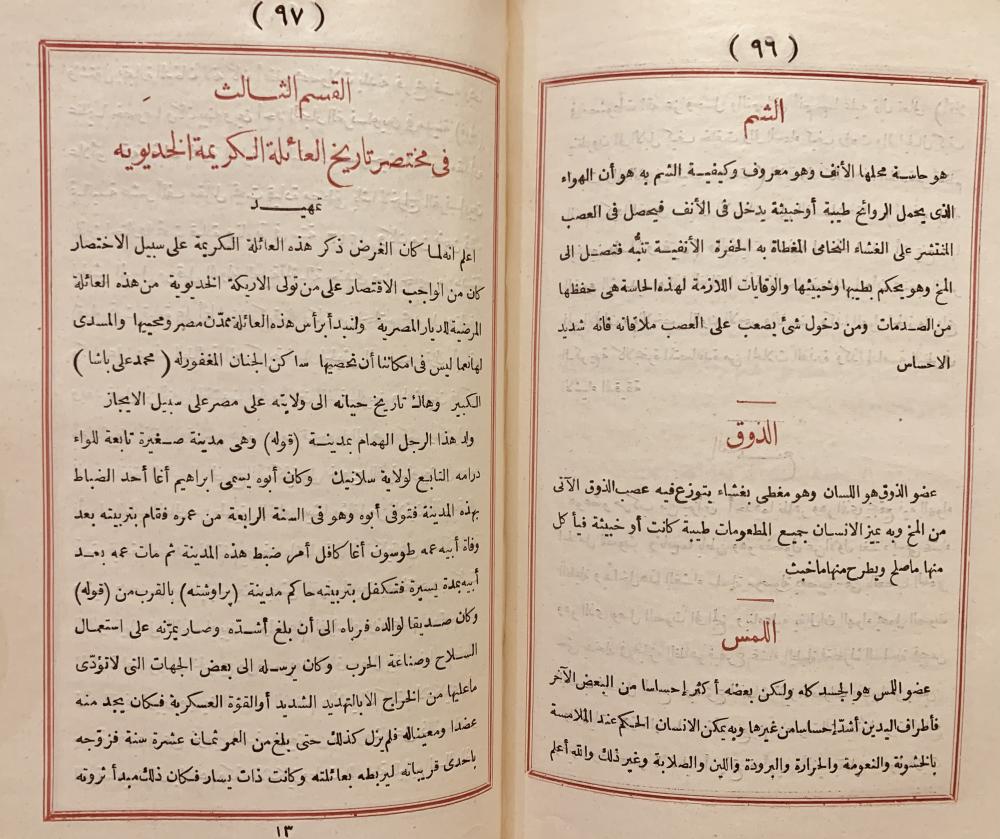 (٩٦)
الشم
هو حاسة محلها الأنف وهو معروف وكيفية الشم به هو أن الهواء
الذى يحمل الروائح طيبة أو خبيثة يدخل فى الأنف فيحصل فى العصب
المنتشر على الغشاء النخامى المغطاة به الحفرة الأنفية تنبُّه فتصل الى
المخ وهو يحكم بطيبها وخبيثها والوقايات اللازمة لهذه الحاسة هى حفظها
من الصدمات ومن دخول شئ يصعب على العصب ملاقاته فانه شديد
الاحساس
الذوق
عضو الذوق هو اللسان وهو مغطى بغشاء يتوزع فيه عصب الذوق الآتى
من المخ وبه يميز الانسان جميع المطعومات طيبة كانت أو خبيثة فيأكل
منها ما صلح ويطرح منها ما خبث
اللمس
عضو اللمس هو الجسد كله ولكن بعضه أكثر إحساسا من البعض الآخر
فأطراف اليدين أشدّ إحساسا من غيرها وبه يمكن الانسان الحكم عند الملامسة
بالخشونة والنعومة والحرارة والبرودة واللين والصلابة وغير ذلك والله أعلم
(٩٧)
القسم الثالث
فى مختصر تاريخ العائلة الكريمة الخديويه
تمهيد
اعلم انه لما كان الغرض ذكر هذه العائلة الكريمة على سبيل الاختصار
كان من الواجب الاقتصار على من تولى الاريكة الخديوية من هذه العائلة
المرضية للديار المصرية ولنبدأ برأس هذه العائلة ممدّن مصر ومحييها والمسدى
لها نعما ليس فى امكاننا أن نحصيها ساكن الجنان المغفور له (محمد على باشا)
الكبير وهاك تاريخ حياته الى ولايته على مصر على سبيل الايجاز
ولد هذا الرجل الهمام بمدينة (قوله) وهى مدينة صغيرة تابعة للواء
درامه التابع لولاية سلانيك وكان أبوه يسمى ابراهيم أغا أحد الضباط
بهذه المدينة فتوفى أبوه وهو فى السنة الرابعة من عمره فقام بتربيته بعد
وفاة أبيه عمه طوسون أغا كافل أمر ضبط هذه المدينة ثم مات عمه بعد
أبيه بمدة يسيرة فتكفل بتربيته حاكم مدينة (براوشته) بالقرب من (قوله)
وكان صديقا لوالده فرباه الى أن بلغ أشدّه وصار يمرّنه على استعمال
السلاح وصناعة الحرب وكان يرسله الى بعض الجهات التى لا تؤدّى
ما عليها من الخراج الا بالتهديد الشديد أو القوّة العسكرية فكان يجد منه
عضدا ومعينا له فلم يزل كذلك حتى بلغ من العمر ثمان عشرة سنة فزوّجه
باحدى قريباته ليربطه بعائلته وكانت ذات يسار فكان ذلك مبدأ ثروته
١٣